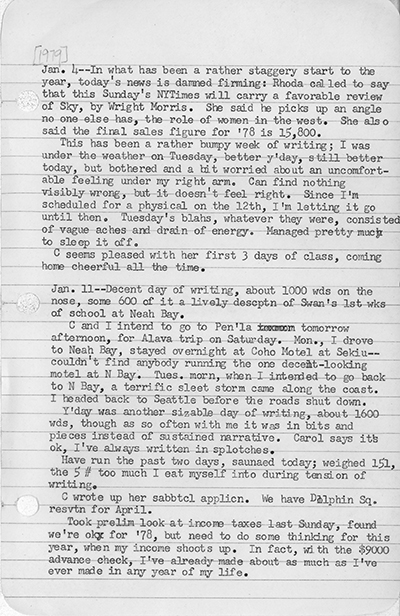 [1979]
Jan. 4--In what has been a rather staggery start to the
year, today's news is damned firming: Rhoda called to say
that this Sunday's NYTimes will carry a favorable review
of Sky, by Wright Morris. She said he picks up an angle
no one else has, the role of women in the west. She also
said the final sales figure for '78 is 15,800.
This has been a rather bumpy week of writing; I was
under the weather on Tuesday, better y'day, still better
today, but bothered and a bit worried about an uncomfort-
able feeling under my right arm. Can find nothing
visibly wrong, but it doesn't feel right. Since I'm
scheduled for a physical on the 12th, I'm letting it go
until then. Tuesday's blahs, whatever they were, consisted
of vague aches and drain of energy. Managed pretty much
to sleep it off.
C seems pleased with her first 3 days of class, coming
home cheerful all the time.
Jan. 11--Decent day of writing, about 1000 wds on the
nose, some 600 of it a lively descptn of Swan's 1st wks
of school at Neah Bay.
C and I intend to go to Pen'la tomorrow
afternoon, for Alava trip on Saturday. Mon., I drove
to Neah Bay, stayed overnight at Coho Motel at Sekiu--
couldn't find anybody running the one decent-looking
motel at N Bay. Tues. morn, when I intended to go back
to N Bay, a terrific sleet storm came along the coast.
I headed back to Seattle before the roads shut down.
Y'day was another sizable day of writing, about 1600
wds, though as so often with me it was in bits and
pieces instead of sustained narrative. Carol says it's
ok, I've always written in splotches.
Have run the past two days, saunaed today; weighed 151,
the 5 # too much I eat myself into during tension of
writing.
C wrote up her sabbtcl applicn. We have Dolphin Sq.
resvtn for April.
Took prelim look at income taxes last Sunday, found
we're ok for '78, but need to do some thinking for this
year, when my income shoots up. In fact, with the $9000
advance check, I've already made about as much as I've
ever made in any year of my life.